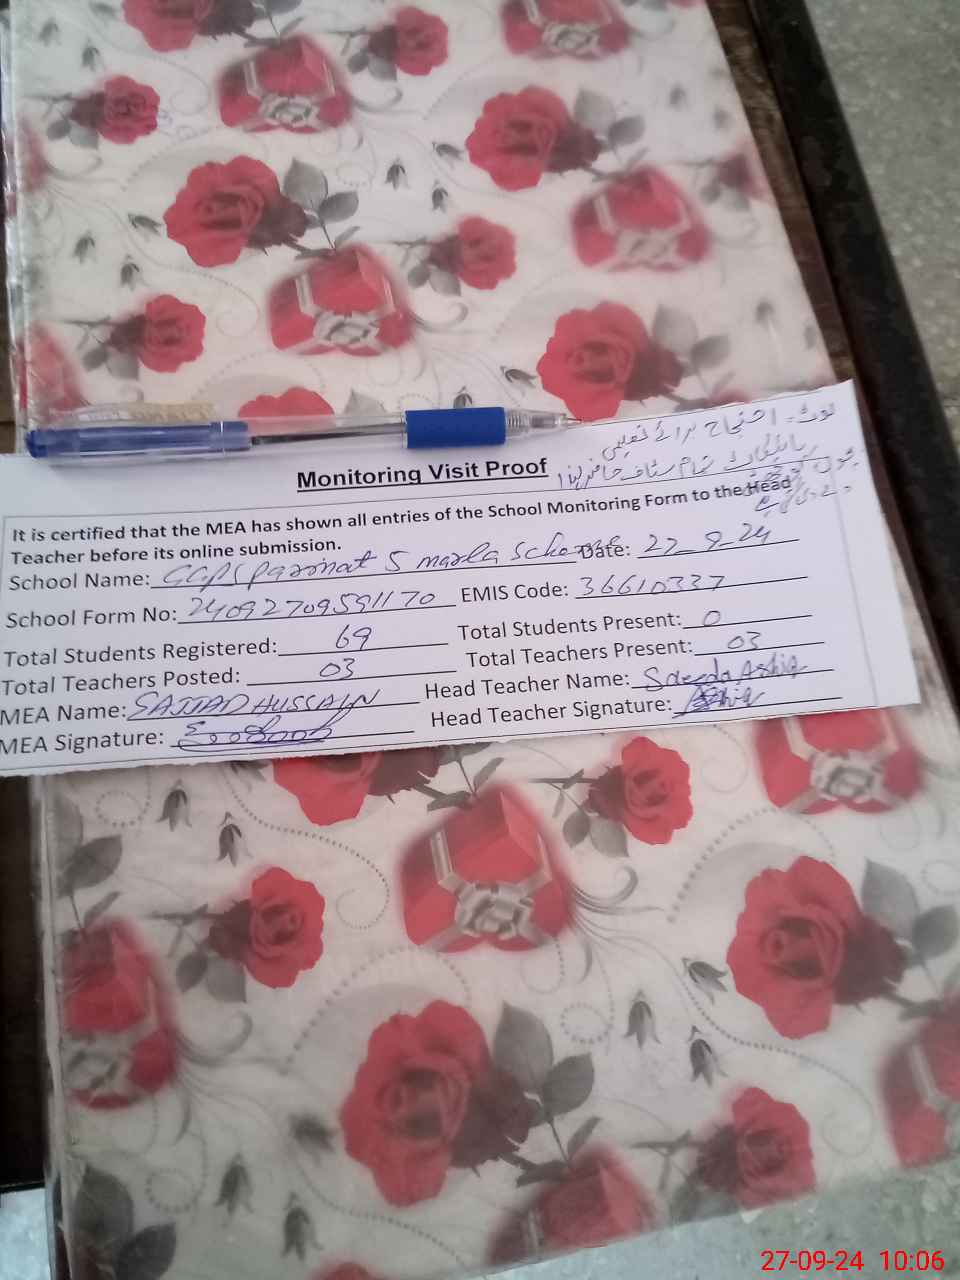 نوٹ۔ احتجاج برائے تعلیمی
بائیکاٹ تمام سٹاف حاضر
Monitoring Visit Proof
It is certified that the MEA has shown all entries of the School Monitoring Form to the Head
Teacher before its online submission.
School Name: 5 marla Scheme Date: 27-9-24
School Form No: 24092709591170 EMIS Code: 36610337
Total Students Registered: 69 Total Students Present: 0
Total Teachers Posted: 03 Total Teachers Present: 03
MEA Name: SAJJAD HUSSAIN Head Teacher Name: Saeeda Ashiq
MEA Signature: Head Teacher Signature: Ashiq
27-09-24 10:06